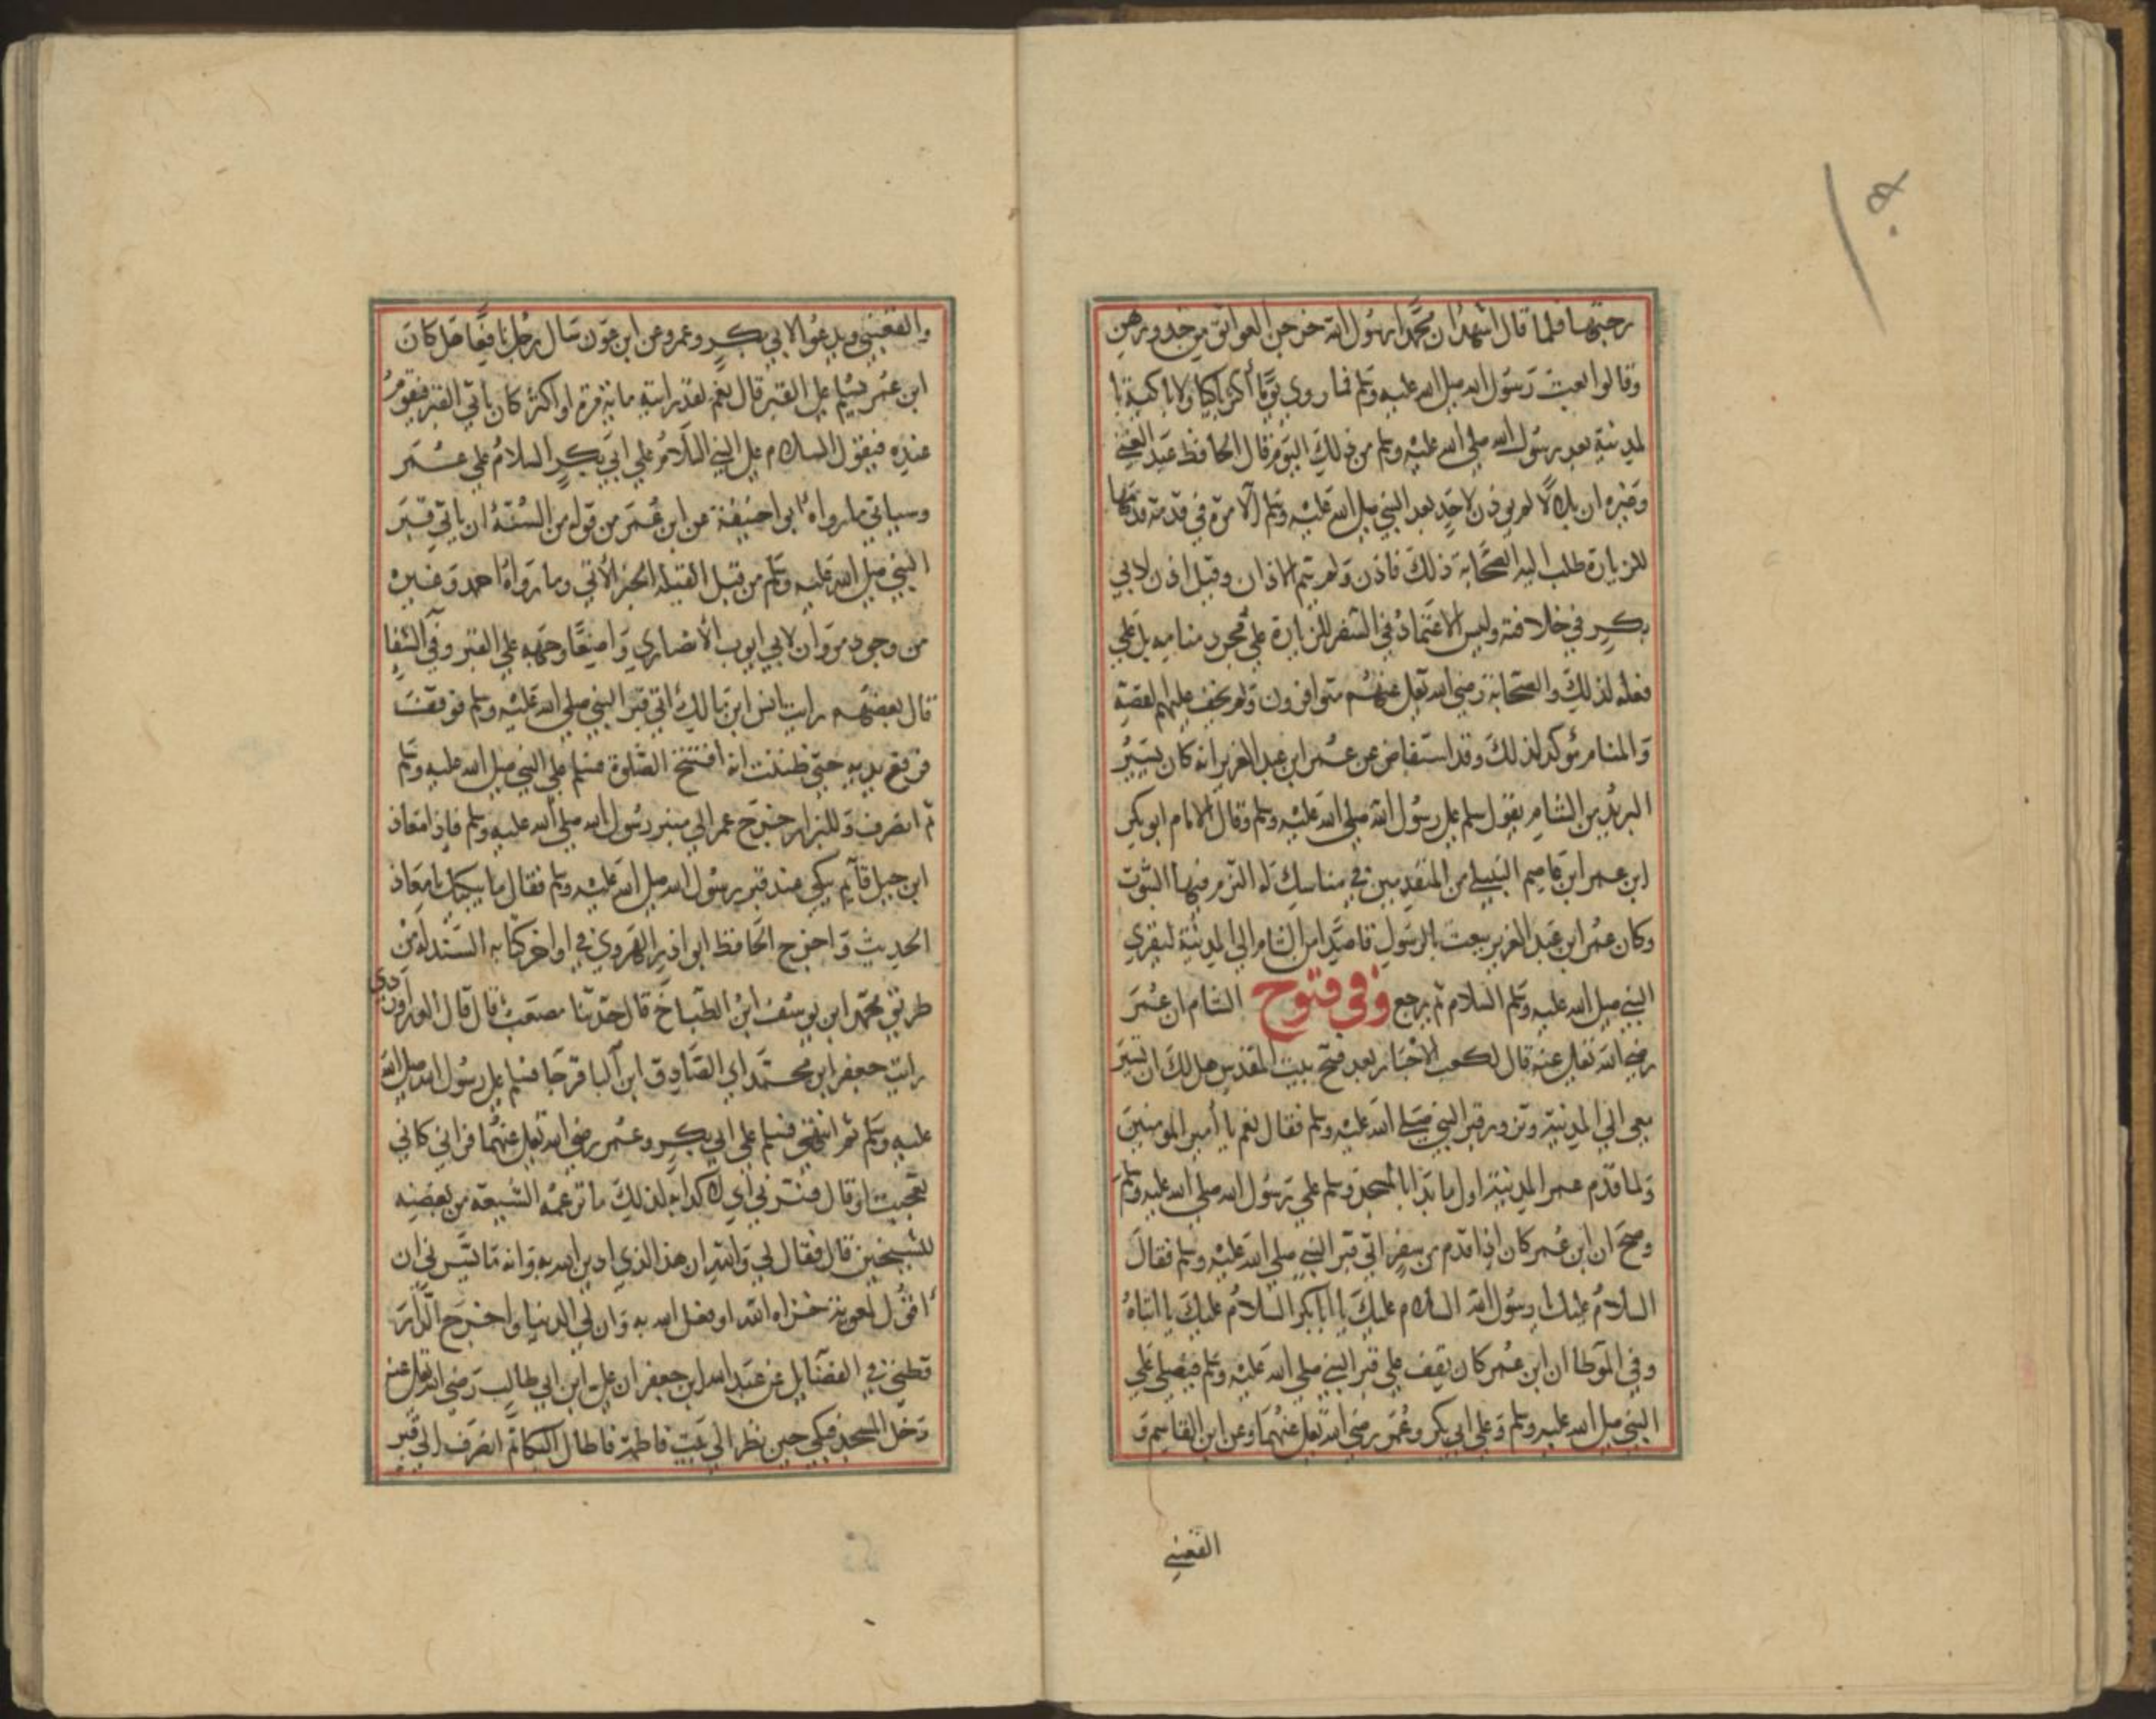 رجتها فلما قال اشهد ان محمدا رسول الله خرجن العواتق من خدورهن
وقالوا بعث رسول الله صلى الله عليه وسلم فما روي يوما أكثر باكيا ولا باكية با
لمدينة بعد رسول الله صلى الله عليه وسلم من ذلك اليوم قال الحافظ عبد الغني
وغيره ان بلالا لم يوذن لاحد بعد النبي صلى الله عليه وسلم الا مرة في قدمة قدمها
للزيارة طلب اليه الصحابة ذلك فاذن ولم يتم الاذان وقيل اذن لابي
بكر في خلافته وليس الاعتماد في السفر للزيارة على مجرد منامه بل على
فعله لذلك والصحابة رضي الله تعالى عنهم متوافرون ولم يخف عليهم لقصة
والمنام مؤكد لذلك وقد استفاض عن عمر ابن عبد العزيز انه كان يسير
البريد من الشام يقول سلم على رسول الله صلى الله عليه وسلم وقال الامام ابو بكر
ابن عمر ابن عاصم النبيل من المتقدمين في مناسك له التزم فيها الثبوت
وكان عمر ابن عبد العزيز يبعث بالرسول قاصدا من الشام الى المدينة ليقري
النبي صلى الله عليه وسلم السلام ثم يرجع وفي فتوح الشام ان عمر
رضي الله تعالى عنه قال لكعب الاحبار بعد فتح بيت المقدس هل لك ان تسير
معي الى المدينة وتزور قبر النبي صلى الله عليه وسلم فقال نعم يا أمير المومنين
ولما قدم عمر المدينة اول ما بدا بالمسجد وسلم على رسول الله صلى الله عليه وسلم
وصح ان ابن عمر كان اذا قدم من سفر اتى قبر النبي صلى الله عليه وسلم فقال
السلام عليك يا رسول الله السلام عليك يا ابا بكر السلام عليك يا ابتاه
وفي الموطا ان ابن عمر كان يقف على قبر النبي صلى الله عليه وسلم فيصلي على
النبي صلى الله عليه وسلم وعلى ابي بكر وعمر رضي الله تعالى عنهما وعن ابن القاسم و
القعنبي
والقعنبي ويدعو لابي بكر وعمر وعن ابن عون سال رجل نافعا هل كان
ابن عمر يسلم على القبر قال نعم لقد رايته ماية مرة او اكثر كان ياتي القبر فيقوم
عنده فيقول السلام على النبي السلام على ابي بكر السلام على عمر
وسياتي ما رواه ابو احنيفة عن ابن عمر من قوله من السنة ان ياتي قبر
النبي صلى الله عليه وسلم من قبل القبلة الخبر الأتي وما رواه احمد وغيره
من وجود مروان لابي ايوب الأنصاري واضعا وجهه على القبر وفي الشفا
قال بعضهم رايت انس ابن مالك اتى قبر النبي صلى الله عليه وسلم فوقف
فرفع يديه حتى ظننت انه افتتح الصلوة فسلم على النبي صلى الله عليه وسلم
ثم انصرف وللبزار خرج عمر الى منبر رسول الله صلى الله عليه وسلم فاذا معاذ
ابن جبل قايم يبكي عند قبر رسول الله صلى الله عليه وسلم فقال ما يبكيك يا معاذ
الحديث واخرج الحافظ ابو اذر الهروي في اواخر كتابه السنة له من
طريق محمد ابن يوسف ابن الطباخ قال حدثنا مصعب قال قال الدراوردي
رايت جعفر ابن محمد اي الصادق ابن الباقر جا فسلم على رسول الله صلى الله
عليه وسلم ثم انتحى فسلم على ابي بكر وعمر رضي الله تعالى عنهما فراني كاني
تعجبت او قال فسرني اي لاكذابه لذلك ما تزعمه الشيعة من بغضه
للشيخين قال فقال لي والله ان هذا الذي ادين الله به وانه ما يسرني ان
اقول لمعوية خزاه الله او فعل الله به وان لي الدنيا واخرج الدار
قطني في الفضايل عن عبد الله ابن جعفر ان علي ابن ابي طالب رضي الله تعالى عنه
دخل المسجد فبكى حين نظر الى بيت فاطمة فاطال البكا ثم انصرف الى قبر